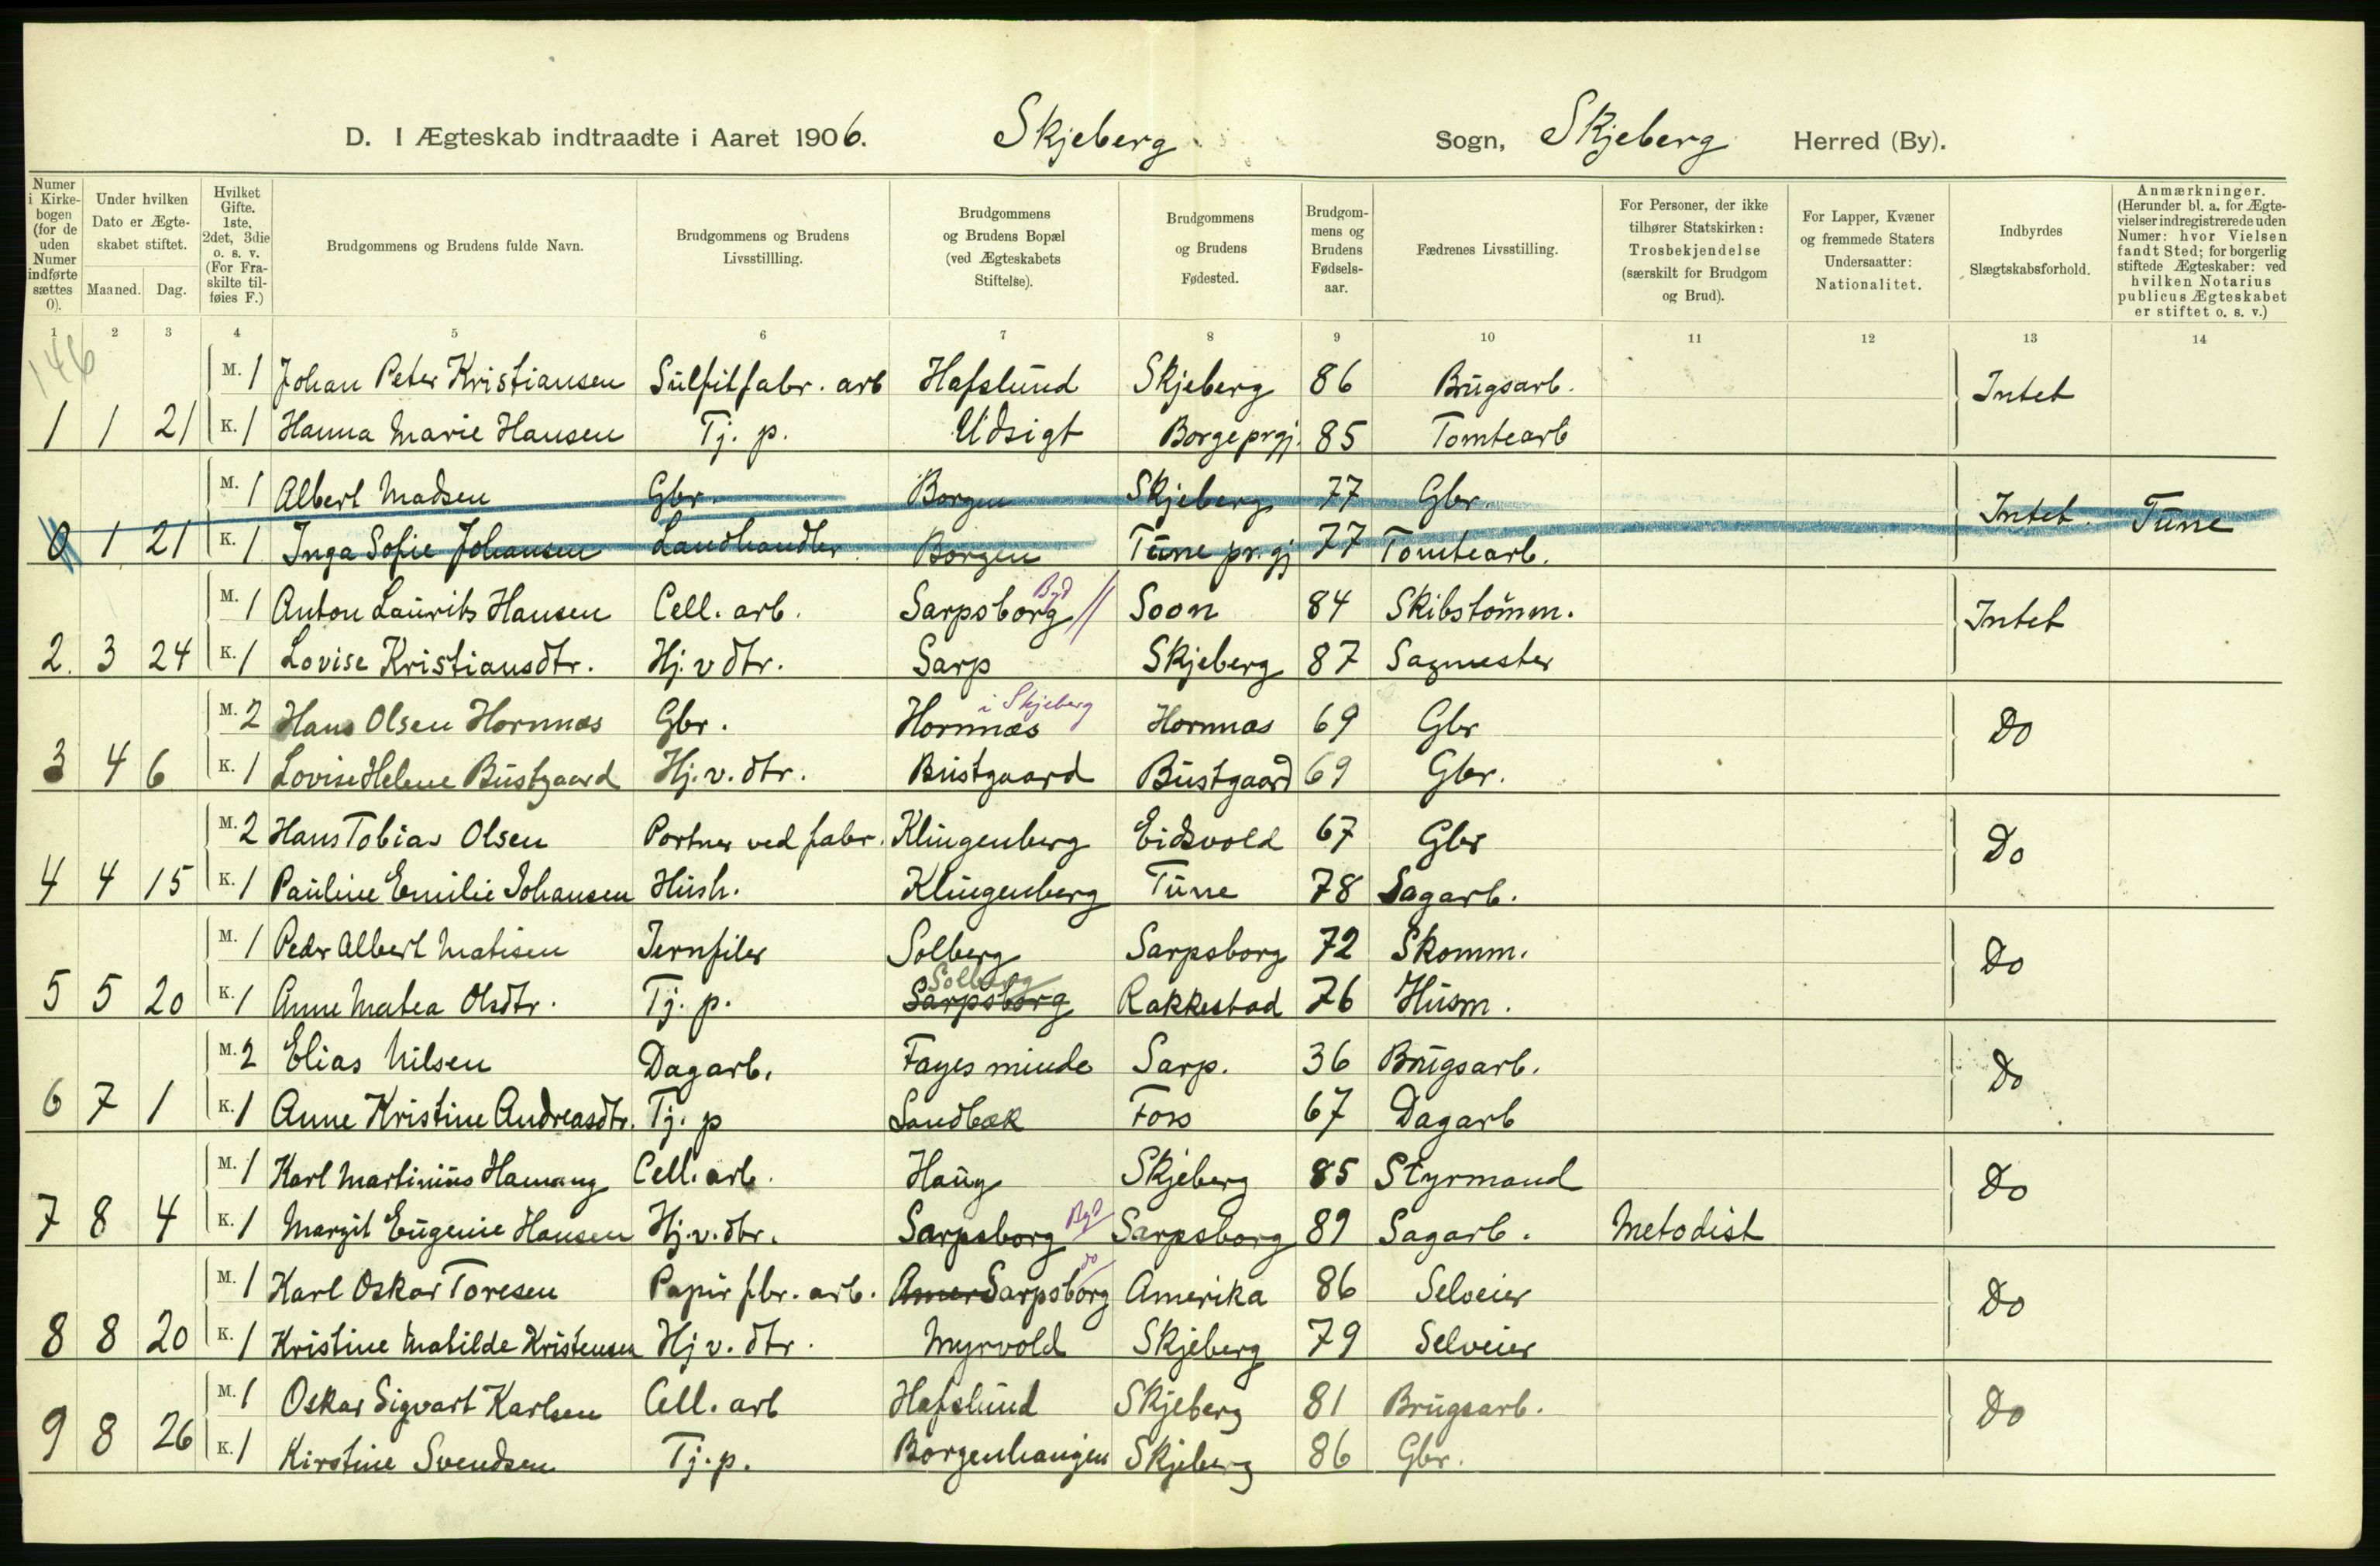 D. I Ægteskab indtraadte i Aaret 1906. Skjeberg Sogn, Skjeberg Herred (By).
Numer i Kirkebogen (for de uden Numer indførte sættes 0). | Under hvilken Dato er Ægteskabet stiftet. Maaned. Dag. | Hvilket Gifte. 1ste, 2det, 3die o. s. v. (For Fraskilte tilføies F.) | Brudgommens og Brudens fulde Navn. | Brudgommens og Brudens Livsstillling. | Brudgommens og Brudens Bopæl (ved Ægteskabets Stiftelse). | Brudgommens og Brudens Fødested. | Brudgommens og Brudens Fødselsaar. | Fædrenes Livsstilling. | For Personer, der ikke tilhører Statskirken: Trosbekjendelse (særskilt for Brudgom og Brud). | For Lapper, Kvæner og fremmede Staters Undersaatter: Nationalitet. | Indbyrdes Slægtskabsforhold. | Anmærkninger. (Herunder bl. a. for Ægtevielser indregistrerede uden Numer: hvor Vielsen fandt Sted; for borgerlig stiftede Ægteskaber: ved hvilken Notarius publicus Ægteskabet er stiftet o. s. v.)
1 2 3 4 5 6 7 8 9 10 11 12 13 14
146
M. 1 Johan Peter Kristiansen Sulfitfabr. arb Hafslund Skjeberg 86 Brugsarb. Intet
1 1 21 K. 1 Hanna Marie Hansen Tj. p. Udsigt Borge prgj. 85 Tomtearb
M. 1 Albert Madsen Gbr. Borgen Skjeberg 77 Gbr. Intet. Tune
0 1 21 K. 1 Inga Sofie Johansen Landhandler Borgen Tune pr.gj 77 Tomtearb.
M. 1 Anton Laurits Hansen Cell. arb. Sarpsborg Byd // Soon 84 Skibstømm. Intet
2. 3 24 K. 1 Lovise Kristiansdtr. Hj. v dtr. Sarp Skjeberg 87 Sagmester
M. 2 Hans Olsen Hornnæs Gbr. Hornnæs i Skjeberg Hornnæs 69 Gbr Do
3 4 6 K. 1 Lovise Helene Bustgaard Hj. v. dtr. Bustgaard Bustgaard 69 Gbr.
M. 2 Hans Tobias Olsen Portner ved fabr. Klingenberg Eidsvold 67 Gbr Do
4 4 15 K. 1 Pauline Emilie Johansen Hush. Klingenberg Tune 78 Sagarb.
M. 1 Peder Albert Matisen Jernfiler Solberg Sarpsborg 72 Skomm. Do
5 5 20 K. 1 Anne Matea Olsdtr. Tj. p. Sarpsborg Solberg Rakkestad 76 Husm.
M. 2 Elias Nilsen Dagarb. Fayes minde Sarp. 36 Brugsarb. Do
6 7 1 K. 1 Anne Kristine Andreasdtr. Tj. p Sandbæk Foss 67 Dagarb
M. 1 Karl Martinius Hamang Cell. arb. Haug Skjeberg 85 Styrmand Do
7 8 4 K. 1 Margit Eugenie Hansen Hj. v. dtr. Sarpsborg Byd Sarpsborg 89 Sagarb. Metodist
M. 1 Karl Oskar Toresen Papir fbr. arb. Amer Sarpsborg do Amerika 86 Selveier Do
8 8 20 K. 1 Kristine Matilde Kristensen Hj v. dtr. Myrvold Skjeberg 79 Selveier
M. 1 Oskar Sigvart Karlsen Cell. arb Hafslund Skjeberg 81 Brugsarb. Do
9 8 26 K. 1 Kirstine Svendsen Tj. p. Borgenhaugen Skjeberg 86 Gbr.